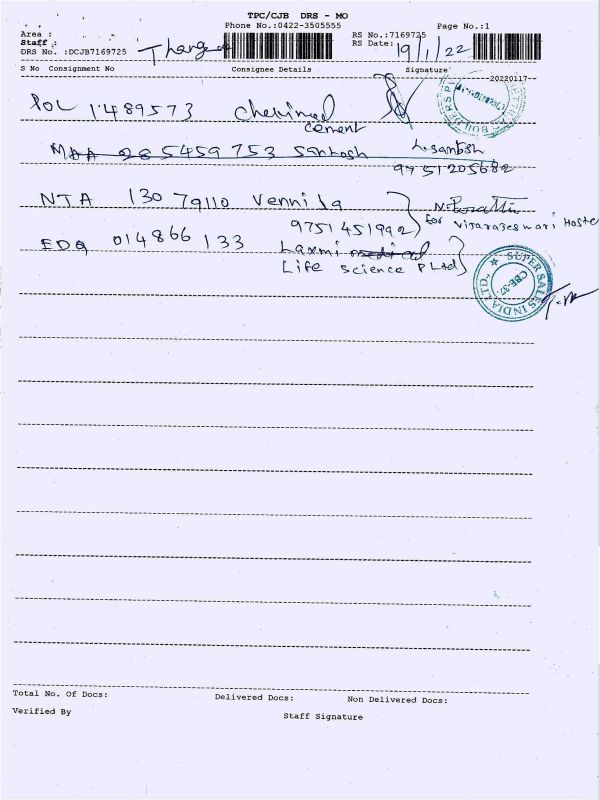 TPC/CJB DRS - MO
Phone No.:0422-3505555 Page No.:1
Area : RS No.:7169725
Staff : RS Date: 19/1/22
DRS No. :DCJB7169725
S No Consignment No Consignee Details Signature
20220117
POL 1489573 Chettinad
cement
MAA 285459753 Santosh L. Santosh
9751205682
NTA 130 79110 Vennila
9751451992 for Vijarajeswari Hostel
EDQ 014866133 Laxmi medical
Life science P Ltd
SUPER SALES INDIA LTD.,
CBE-37.
Total No. Of Docs: Delivered Docs: Non Delivered Docs:
Verified By Staff Signature